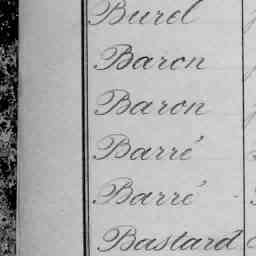 Burel
Baron
Baron
Barré
Barré
Bastard